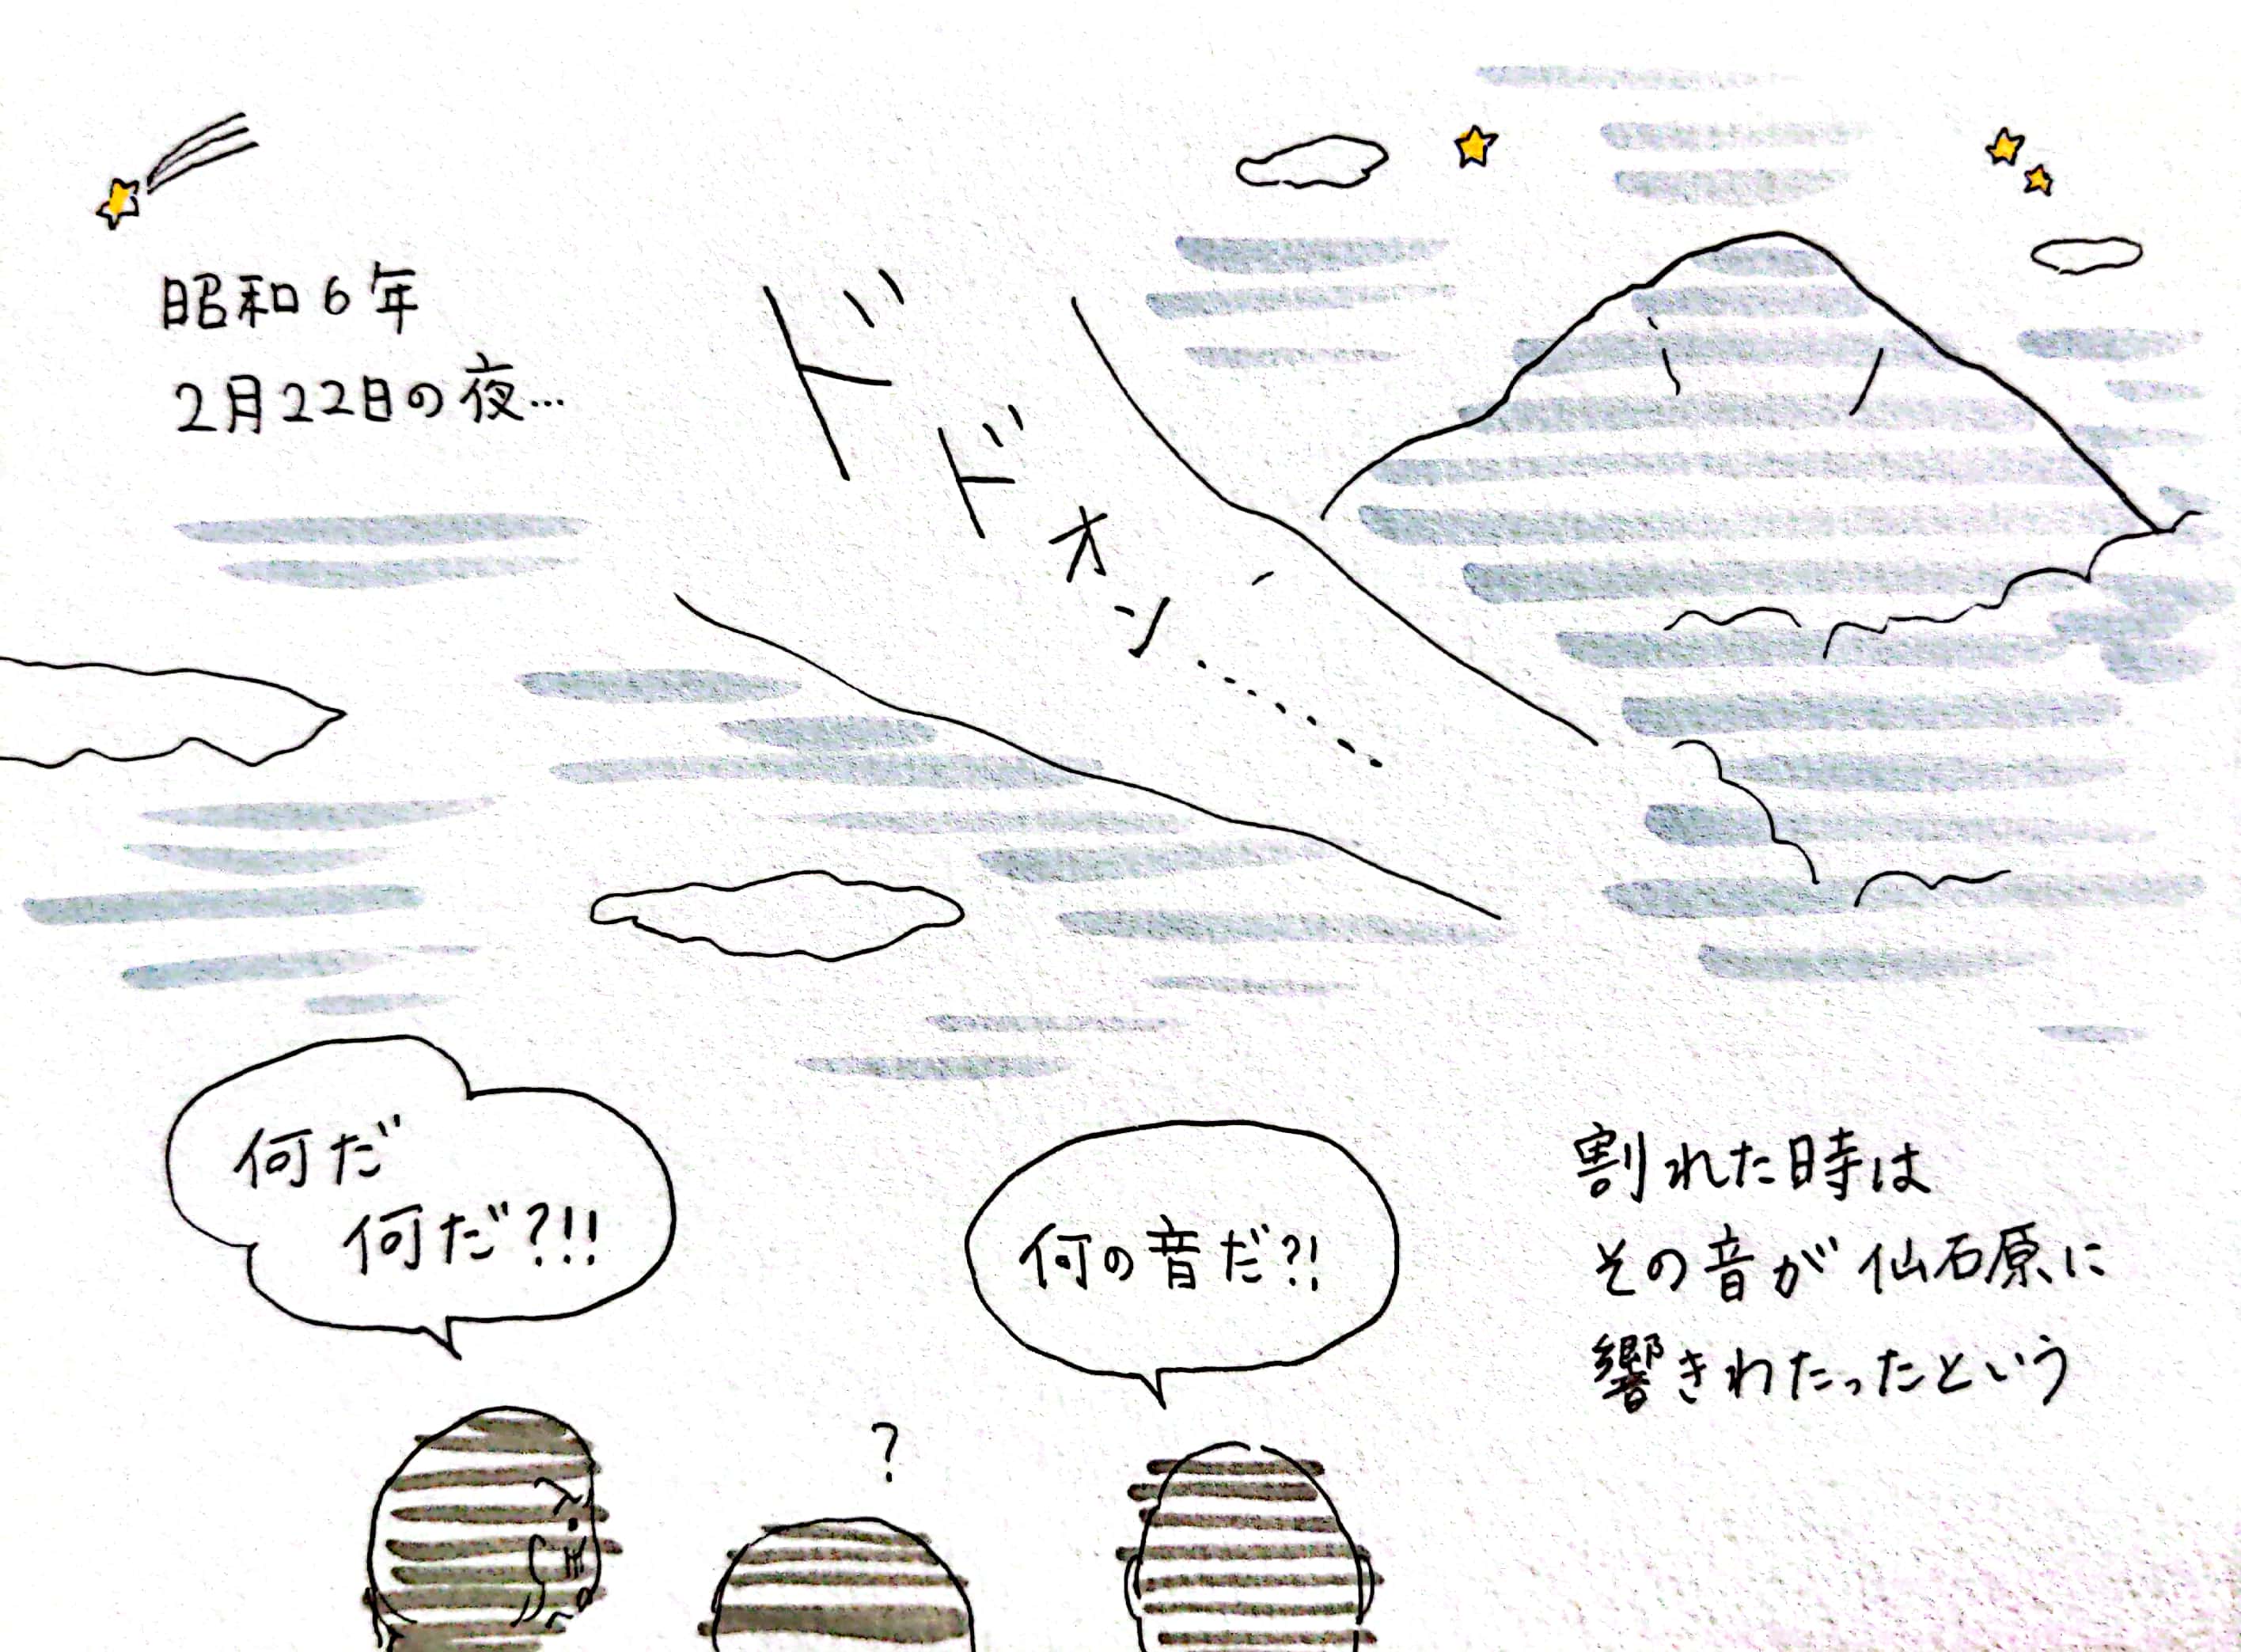 昭和6年
2月22日の夜…
ドドオン………
何だ
何だ?!!
何の音だ?!
?
割れた時は
その音が仙石原に
響きわたったという